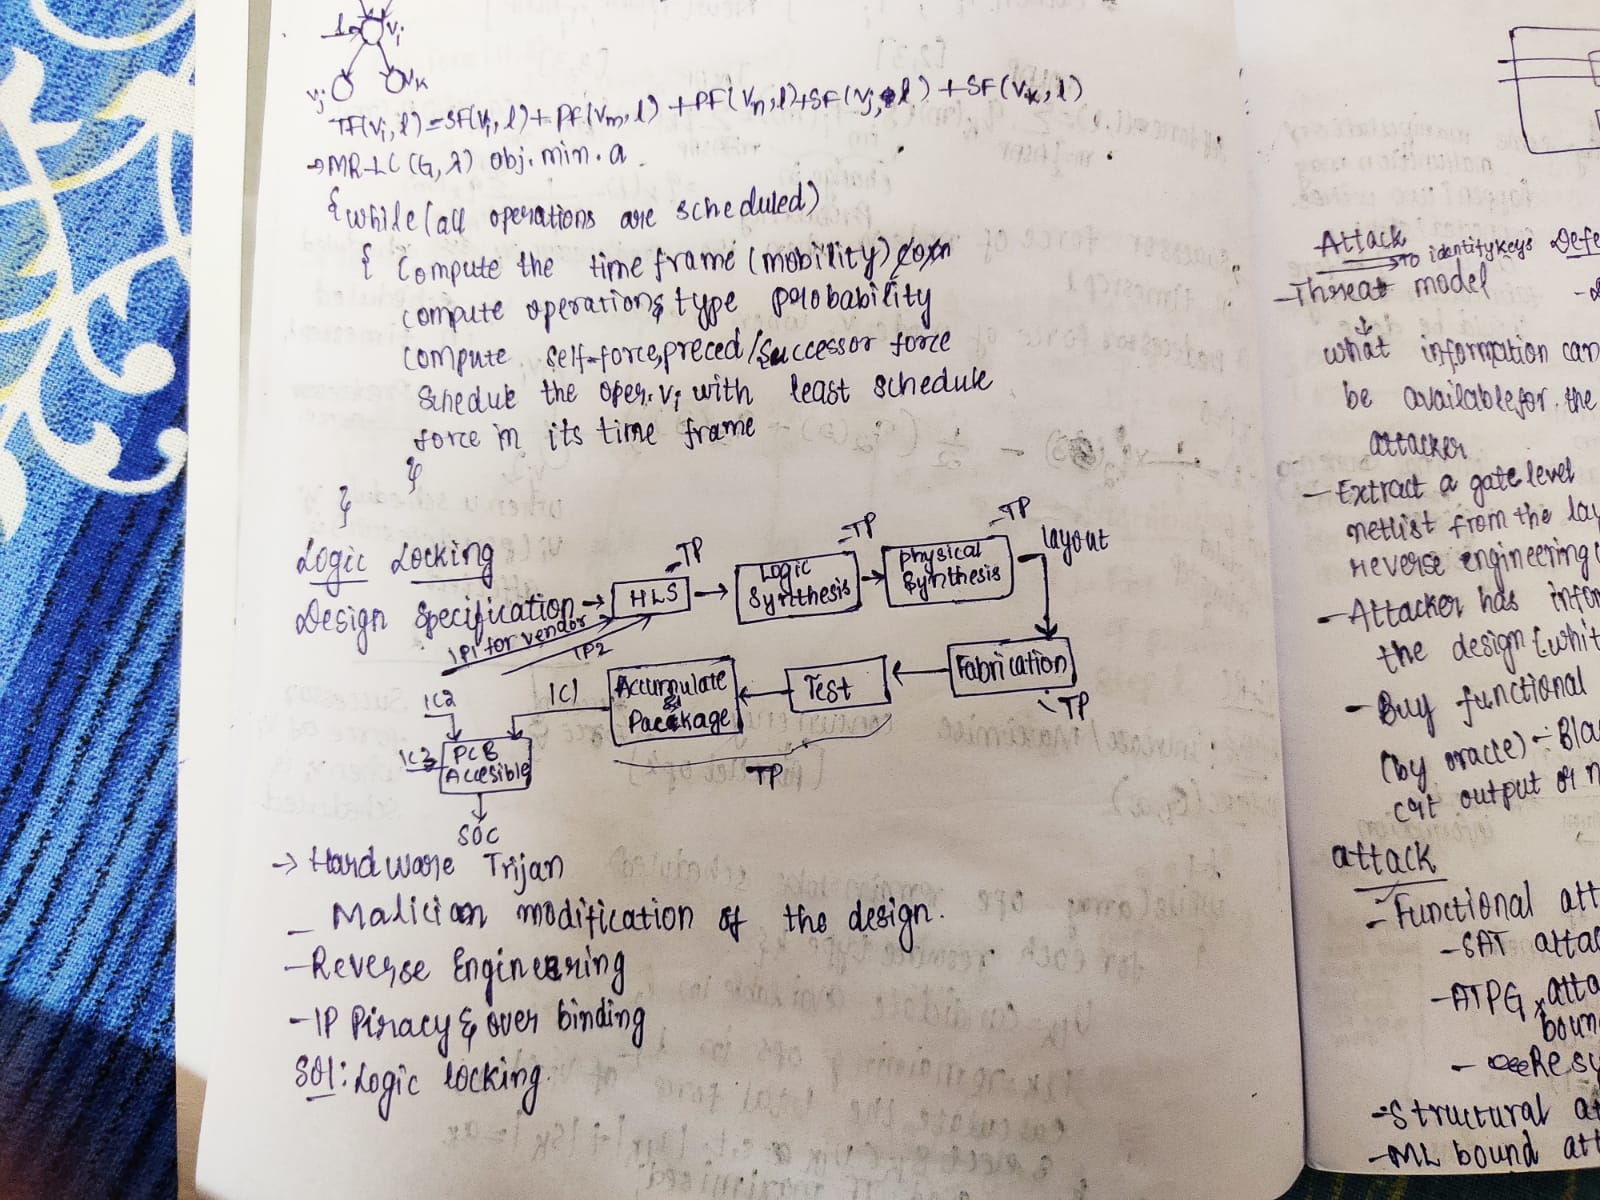 l→ vi
vj vk
TF(vi, l) = SF(vi, l) + PF(vm, l) + PF(vn, l) + SF(vj, l) + SF(vk, l)
→ MR-LC (G, λ) obj. min. a
{ while (all operations are scheduled)
{ compute the time frame (mobility)
compute operations type probability
compute self-force, preced/successor force
schedule the oper. vi with least schedule
force in its time frame
}
}
Logic Locking
Design specification → HLS → Logic Synthesis → physical synthesis
-TP -TP -TP layout
IP1 for vendor
IP2
Fabrication
-TP
Test
Accumulate & Package
TP
IC1
IC2
IC3
PCB Accesible
SOC
→ Hardware Trijan
- Malician modification of the design.
- Reverse Engineering
- IP Piracy & over binding
Sol: Logic locking.
Attack → To identity keys
- Threat model
what information can
be available for the
attacker
- Extract a gate level
netlist from the
reverse engineering
- Attacker has
the design
- Buy functional
(by oracle) -
ckt output
attack
- Functional
- SAT
- ATPG
- Structural
- ML bound